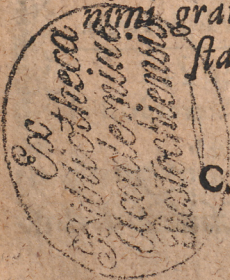 nimi grat
sta
Ex
Bibliotheca
Academiae
Rostochiensis
C